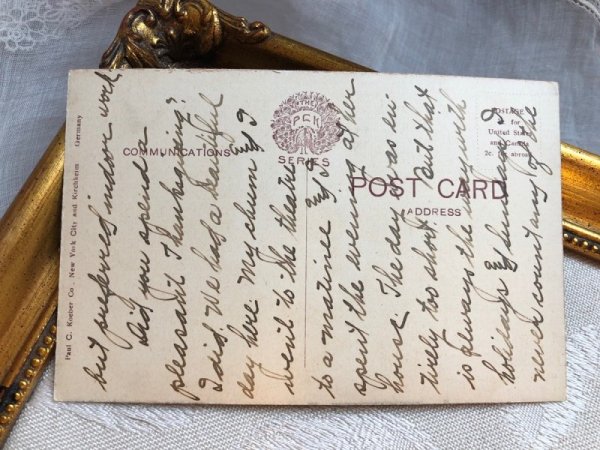 but preferred indoor work
Did you spend a
pleasant Thanksgiving?
I did. We had a beautiful
day here. My chum and I
went to the theatre
to a matinee and I
spent the evening at her
house. The day was en-
tirely too short. But that
is always the way with
holidays and birthdays I
never count any of the
COMMUNICATIONS
THE
PCK
SERIES
POST CARD
ADDRESS
POSTAGE
for
United States
and Canada
2c. abroad
Paul C. Koeber Co., New York City and Kirchheim Germany